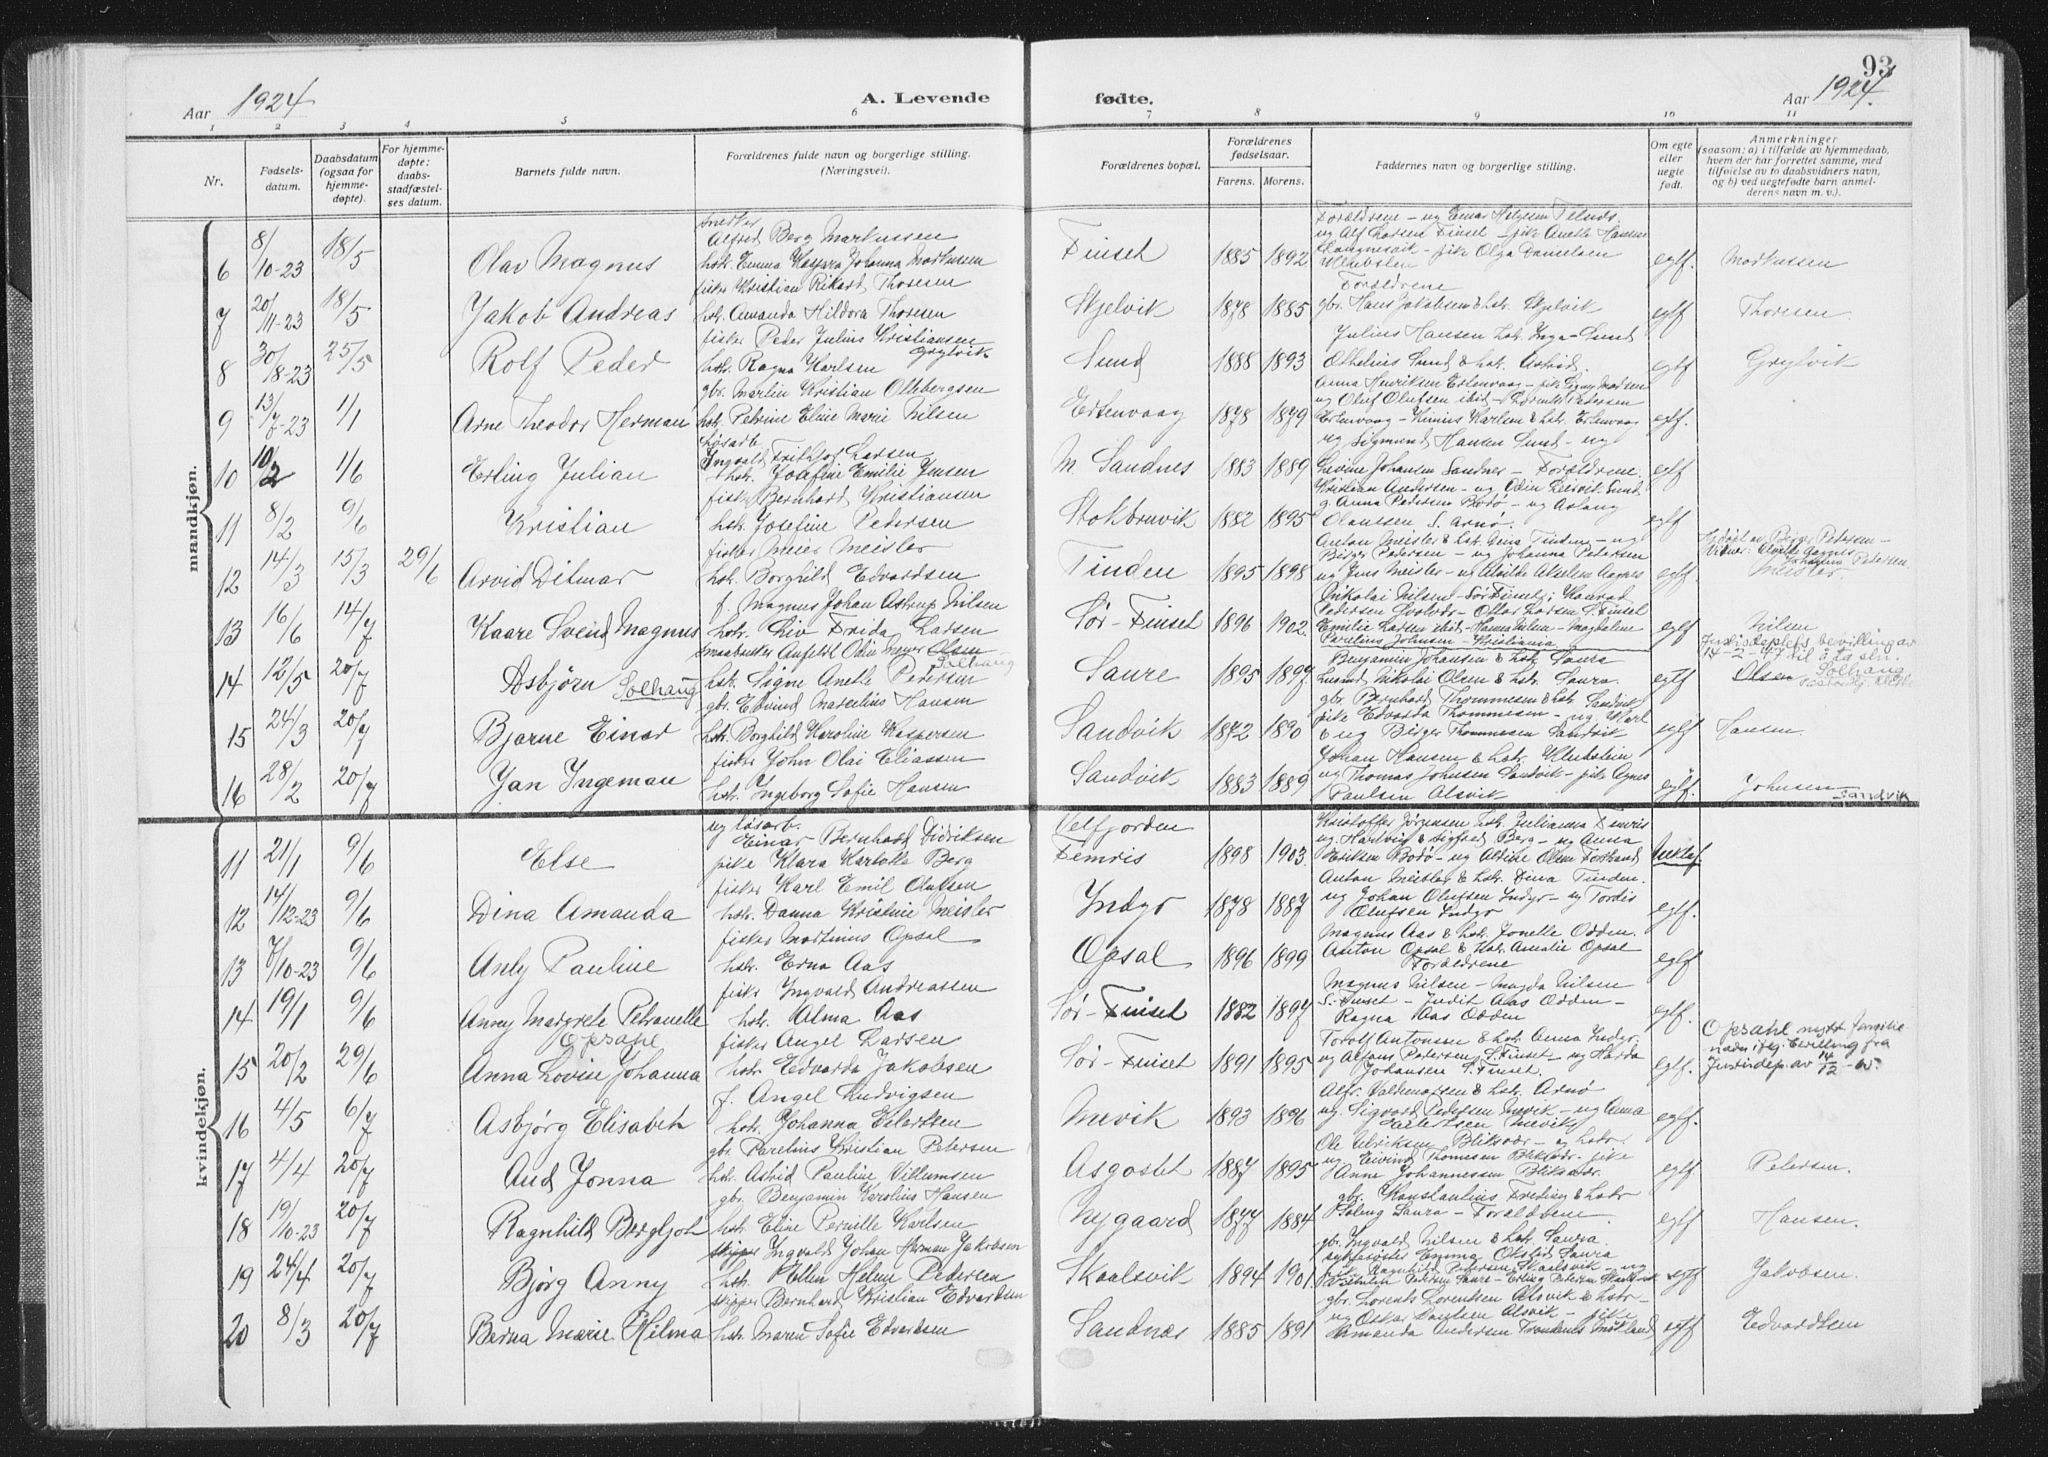 Aar 1924
A. Levende
fødte.
93
Aar 1924.
1 2 3 4 5 6 7 8 9 10 11
Nr.
Fødsels-
datum.
Daabsdatum
(ogsaa for
hjemme-
døpte).
For hjemme-
døpte:
daabs-
stadfæstel-
ses datum.
Barnets fulde navn.
Forældrenes fulde navn og borgerlige stilling.
(Næringsvei).
Forældrenes bopæl.
Forældrenes
fødselsaar.
Farens. Morens.
Faddernes navn og borgerlige stilling.
Om egte
eller
uegte
født.
Anmerkninger
(saasom: a) i tilfælde av hjemmedaab,
hvem der har forrettet samme, med
tilføielse av to daabsvidners navn,
og b) ved uegtefødte barn anmel-
derens navn m. v.).
mandkjøn.
6 8/10-23 18/5 Olav Magnus
snekker Alfred Berg Markussen
hstr. Emma Kaspara Johanna Markussen
Finset 1885 1892
Forældrene - ug Einar Helgesen
ug Alf Larsen Finset - pike Anette Hansen
Langnesvik - pike Olga Danielsen
egtf. Markussen
7 20/11-23 18/5 Jakob Andreas
fisker Kristian Rikard Thoresen
hstr. Amanda Hildora Thoresen
Skjelvik 1878 1885
Forældrene
gbr. Hans Jakobsen & hstr. Skjelvik
egtf Thoresen.
8 30/8-23 25/5 Rolf Peder
fisker Peder Julius Kristiansen Grylvik
hstr. Ragna Karlsen
Sund 1888 1893
Julius Hansen hstr. Inga - Sund
Othelius Sund & hstr. Astrid.
egtf Grylvik
9 13/7-23 1/1 Arne Theodor Herman
gbr. Martin Kristian Olbergsen
hstr. Petrine Eline Marie Nilsen
Ertenvaag 1878 1879
Anna Henriksen Ertenvaag - pike Signy Madsen
ug Oluf Olufsen ibid - Lorents Petersen
Ertenvaag - Karlsen & hstr. Ertenvaag
egtf.
10 10/2 1/6 Erling Julian
løsarb. Ingvald Frithjof Larsen
hstr. Josefine Emilie Jensen
M. Sandnes 1883 1889
ug Sigmund Hansen Sund - ug
Levine Johansen Sandnes - Forældrene.
egtf
11 8/2 9/6 Kristian
fisker Bernhard Kristiansen
hstr. Josefine Pedersen
Stokbruvik 1882 1895
Kristian Andersen - ug Odin Leisvik Sund
g. Anna Pedersen Bodø - ug Aslaug
Olaussen S. Arnø.
egtf
12 14/3 15/3 29/6 Arvid Ditmar
fisker Meier Meisler
hstr. Borghild Edvardsen
Tinden 1895 1898
Anton Meisler & hstr. Dina Tinden - ug
Birger Petersen - ug Johanna Petersen
ug Jens Meisler - ug Alvilde Akselsen Aagnes
egtf
Hj.døpt av Birger Pedersen -
Vidner: Alvilde Aagnes
Johanna Petersen.
Meisler.
13 16/6 14/7 Kaare Svend Magnus
f. Magnus Johan Astrup Nilsen
hstr. Liv Frida Larsen
Sør-Finset 1896 1902.
Nikolai Nilsen - Sør Finset; Konrad
Pedersen Svolvær - Ottar Larsen S. Finset
Emilie Larsen ibid - Hanna Nilsen - Magdalene
Parelius Johnsen - Kristiania
egtf Nilsen
14 12/5 20/7 Asbjørn Solhaug
smaabruker Anfeldt Odin Meyer Olsen
Solhaug
hstr. Signe Anette Pedersen
Saure 1895 1897
Benjamin Johansen & hstr. Saura
Lusind Nikolai Olsen & hstr. Saura.
egtf
Justisdeptets bevilling av
14-2-47 til å ta sln.
Solhaug
Olsen
15 24/3 20/7 Bjarne Einar
gbr. Edvind Marselius Hansen
hstr. Borghild Karoline Kaspersen
Sandvik 1872 1890
gbr. Bernhard Thommesen & hstr. Sandvik
pike Edvarda Thommesen - ug Karl
& ug Birger Thommesen Sandvik
egtf Hansen.
16 28/2 20/7 Jan Ingeman
fisker John Olai Eliassen
hstr. Ingeborg Sofie Hansen
Sandvik 1883 1889
Johan Hansen & hstr. Klubstein
ug Thomas Johnsen Sandvik - pike Agnes
Paulsen Alsvik
egtf. Johnsen - Sandvik
kvindekjøn.
11 21/1 9/6 Else
ug løsarb. Einar Bernhard Didriksen
pike Klara Karlotte Berg
Velfjorden
Femris 1898 1903.
Kristoffer Jørgensen hstr. Julianna Femris
ug Hartvig & Sigfred Berg - ug Anna
Eriksen Bodø - ug Aldine Olsen Forstrand
Uektef
12 14/12-23 9/6 Dina Amanda
fisker Karl Emil Olufsen
hstr. Danna Kristine Meisler
Indyr 1878 1887
Anton Meisler & hstr. Dina Tinden.
ug Johan Olufsen Indyr - ug Tordis
Olufsen Indyr
egtf.
13 7/10-23 9/6 Anly Pauline
fisker Martinus Opsal
hstr. Erna Aas
Opsal 1896 1899
Magnus Aas & hstr. Jonelle Odden.
Anton Opsal & hstr. Amalie Opsal
Forældrene
egtf
14 19/1 9/6 Anny Margrete Petronelle
Opsahl
fisker Ingvald Andreassen
hstr. Alma Aas
Sør-Finset 1882 1897
Magnus Nilsen - Magda Nilsen
S. Finset - Judit Aas Odden -
Ragna Aas Odden
egtf.
Opsahl nytt familie-
navn iflg. bevilling fra
Justisdep. av 14/12-
15 20/2 29/6 Anna Lovise Johanna
fisker Angel Larsen
hstr. Edvarda Jakobsen
Sør-Finset 1891 1895
Torolf Antonsen & hstr. Anna Indyr.
ug Alfons Petersen S. Finset - ug Harda
Johansen S. Finset.
egtf.
16 4/5 6/7 Asbjørg Elisabeth
f. Angel Ludvigsen
hstr. Johanna Eilertsen
Mevik 1893 1896
Alfr. Valdemarsen & hstr. Arnø
ug. Sigvart Pedersen Mevik - ug Anna
Eilertsen Mevik
egtf.
17 4/4 20/7 Aud Jonna
gbr. Parelius Kristian Petersen
hstr. Astrid Pauline Villumsen
Asgostet 1887 1895
Ole Ulriksen Bliksvær - og hstr.
ug Eivind Thomesen Bliksvær. pike
Anne Johannessen Bliksvær.
egtf Petersen.
18 19/10-23 20/7 Ragnhild Bergljot
gbr. Benjamin Karolius Hansen
hstr. Eline Pernille Karlsen
Nygaard 1877 1884
gbr. Konstantius Freding & hstr
Saura - Forældrene.
egtf Hansen.
19 24/4 20/7 Bjørg Anny
skipper Ingvald Johan Herman Jakobsen
hstr. Ellen Helene Pedersen
Skaalsvik 1894 1901
gbr. Ingvald Nilsen & hstr. Saura.
sykesøster Emma Saura
pike Ragnhild Petersen Skaalsvik - ug
Petersen Saure - Erling Petersen Skaalsvik
egtf Jakobsen.
20 8/3 20/7 Berna Marie Hilma
skipper Bernhard Kristian Edvardsen
hstr. Maren Sofie Edvardsen
Sandnes 1885 1891
gbr. Lorents Lorentsen Alsvik & hstr.
ug Oskar Paulsen Alsvik - pike
Amanda Andersen
egtf Edvardsen